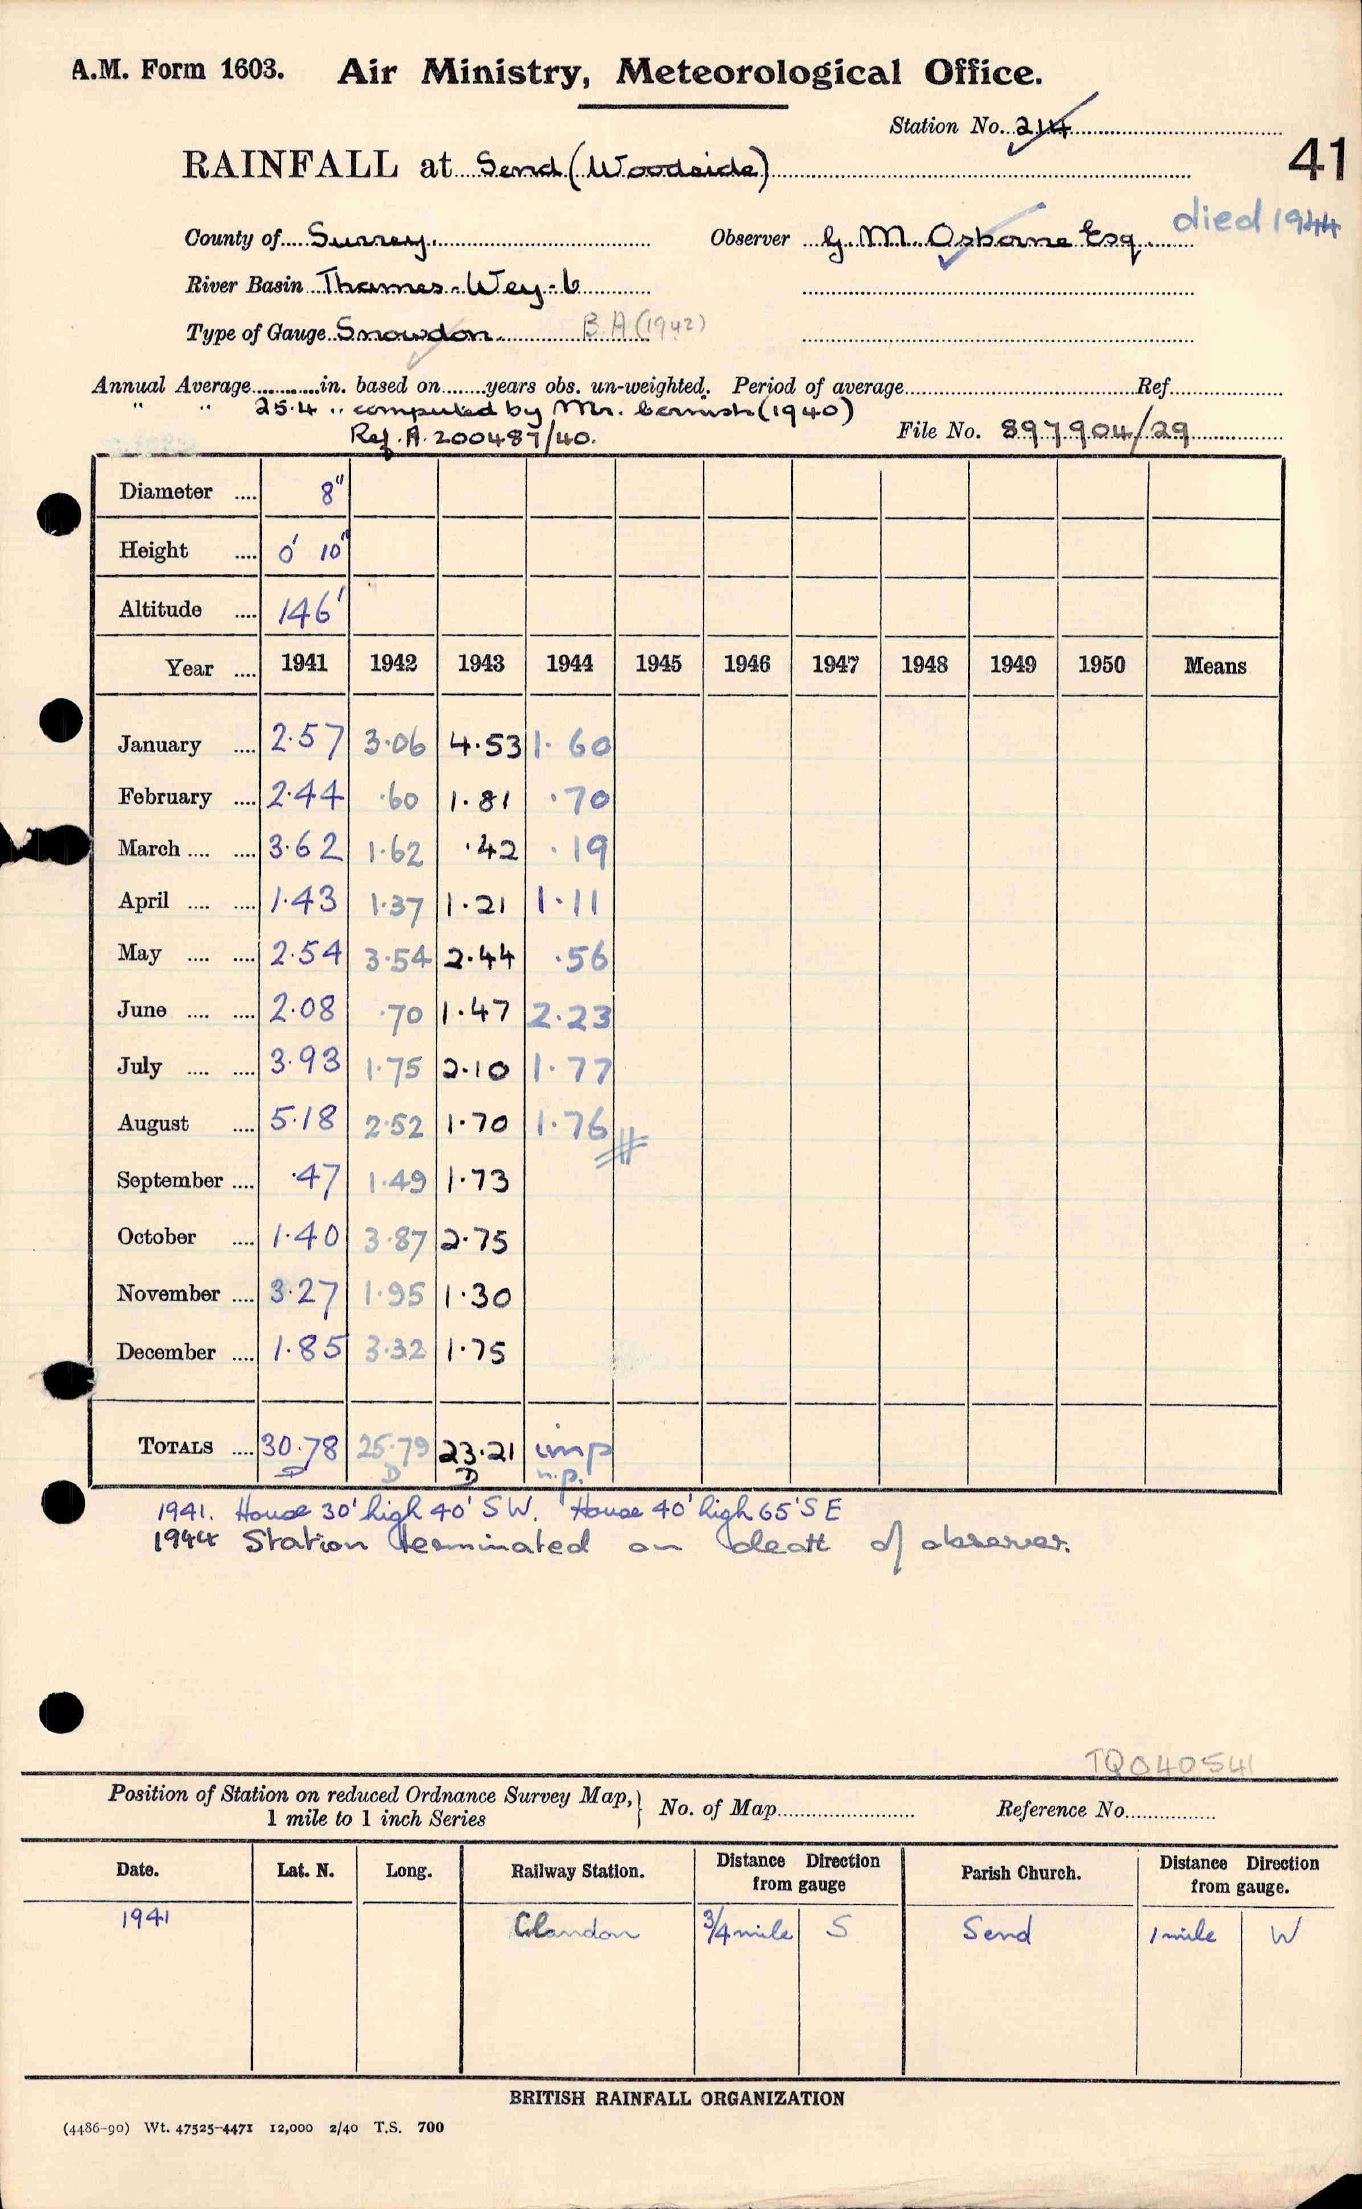 A.M. Form 1603. Air Ministry, Meteorological Office.
Station No. 214
41
RAINFALL at Send (Woodside)
died 1944
County of Surrey. Observer G. M. Osborne Esq.
River Basin Thames-Wey-b
Type of Gauge Snowdon. B A (1942)
Annual Average in. based on years obs. un-weighted. Period of average Ref
" " 25.4 " computed by Mr. Cornish (1940)
Ref. A. 200487/40. File No. 897904/29
Diameter 8"
Height 0' 10"
Altitude 146'
Year 1941 1942 1943 1944 1945 1946 1947 1948 1949 1950 Means
January 2.57 3.06 4.53 1.60
February 2.44 .60 1.81 .70
March 3.62 1.62 .42 .19
April 1.43 1.37 1.21 1.11
May 2.54 3.54 2.44 .56
June 2.08 .70 1.47 2.23
July 3.93 1.75 2.10 1.77
August 5.18 2.52 1.70 1.76
September .47 1.49 1.73
October 1.40 3.87 2.75
November 3.27 1.95 1.30
December 1.85 3.32 1.75
TOTALS 30.78 25.79 23.21 imp
D D D n.p.
1941. House 30' high 40' SW. House 40' high 65' SE
1944 Station terminated on death of observer.
TQ040541
Position of Station on reduced Ordnance Survey Map, 1 mile to 1 inch Series } No. of Map Reference No.
Date. Lat. N. Long. Railway Station. Distance Direction from gauge Parish Church. Distance Direction from gauge.
1941 Clandon 3/4 mile S Send 1 mile W
BRITISH RAINFALL ORGANIZATION
(4486-90) Wt. 47525-4471 12,000 2/40 T.S. 700